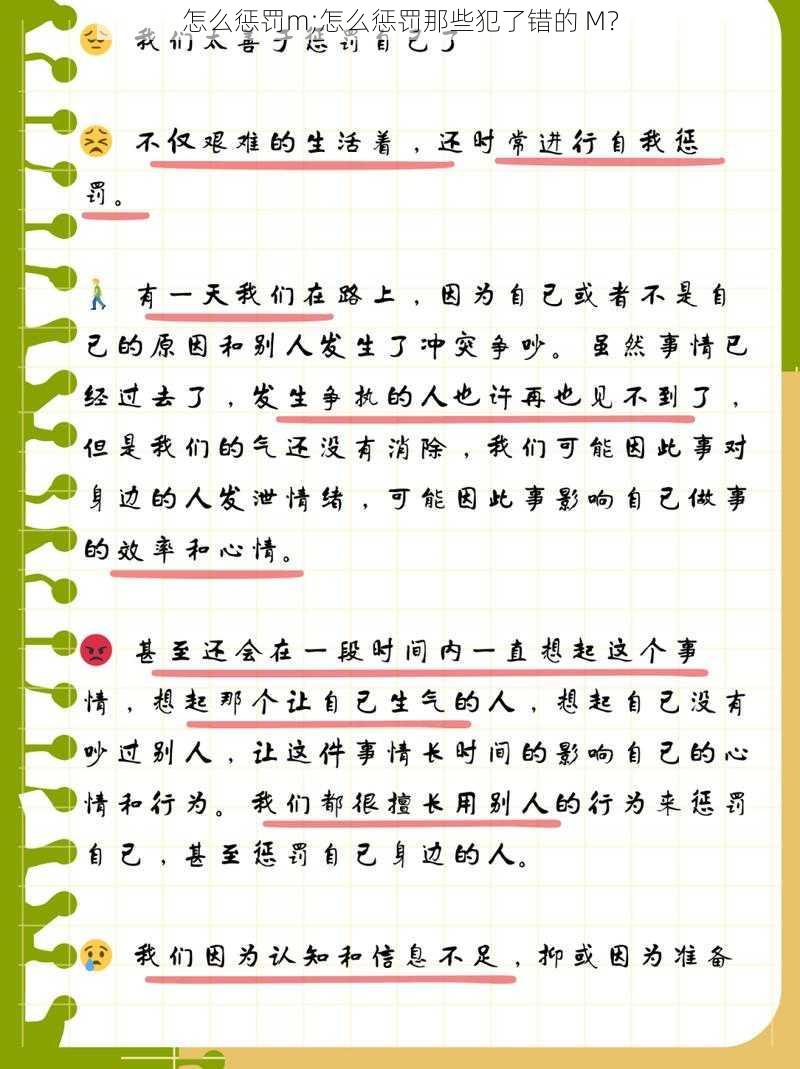 怎么惩罚m;怎么惩罚那些犯了错的 M？
我们太善于惩罚自己了
不仅艰难的生活着，还时常进行自我惩
罚。
有一天我们在路上，因为自己或者不是自
己的原因和别人发生了冲突争吵。虽然事情已
经过去了，发生争执的人也许再也见不到了，
但是我们的气还没有消除，我们可能因此事对
身边的人发泄情绪，可能因此事影响自己做事
的效率和心情。
甚至还会在一段时间内一直想起这个事
情，想起那个让自己生气的人，想起自己没有
吵过别人，让这件事情长时间的影响自己的心
情和行为。我们都很擅长用别人的行为来惩罚
自己，甚至惩罚自己身边的人。
我们因为认知和信息不足，抑或因为准备